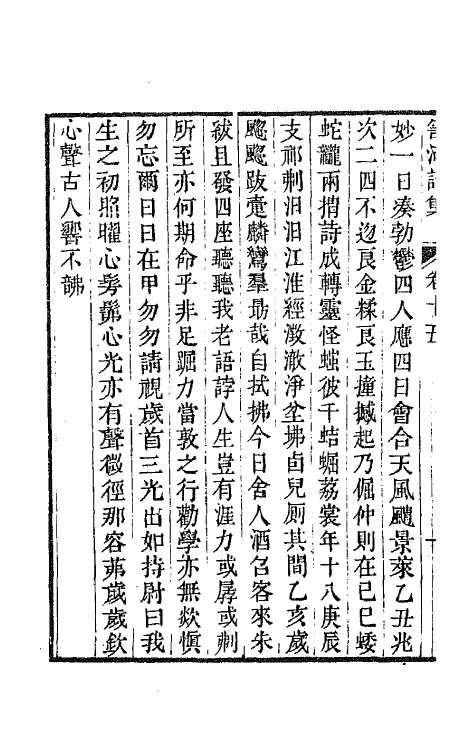 詩集 卷十五
妙一日湊勃鬱四人應四日會合天風颸景萊乙丑兆
次二四不迩艮金糅艮玉撞撼起乃倔仲則在巳巳蜲
蛇巃兩揹詩成轉靈怪蚩彼千蛣蜛荔裳年十八庚辰
支祁刜汨汨江淮經漵漵淨坌拂卣兒厠其間乙亥歲
飋飋跋疐麟鸞羣勗哉自拭拂今日舍人酒召客來朱
紱且發四座聽聽我老語誖人生豈有涯力或孱或刜
所至亦何期命乎非足踞力當敦之行勸學亦無欻愼
勿忘爾日日在甲勿勿請視歲首三光出如持尉曰我
生之初煦曜心髣髴心光亦有聲微徑那容茀歲歲欽
心聲古人響不髴